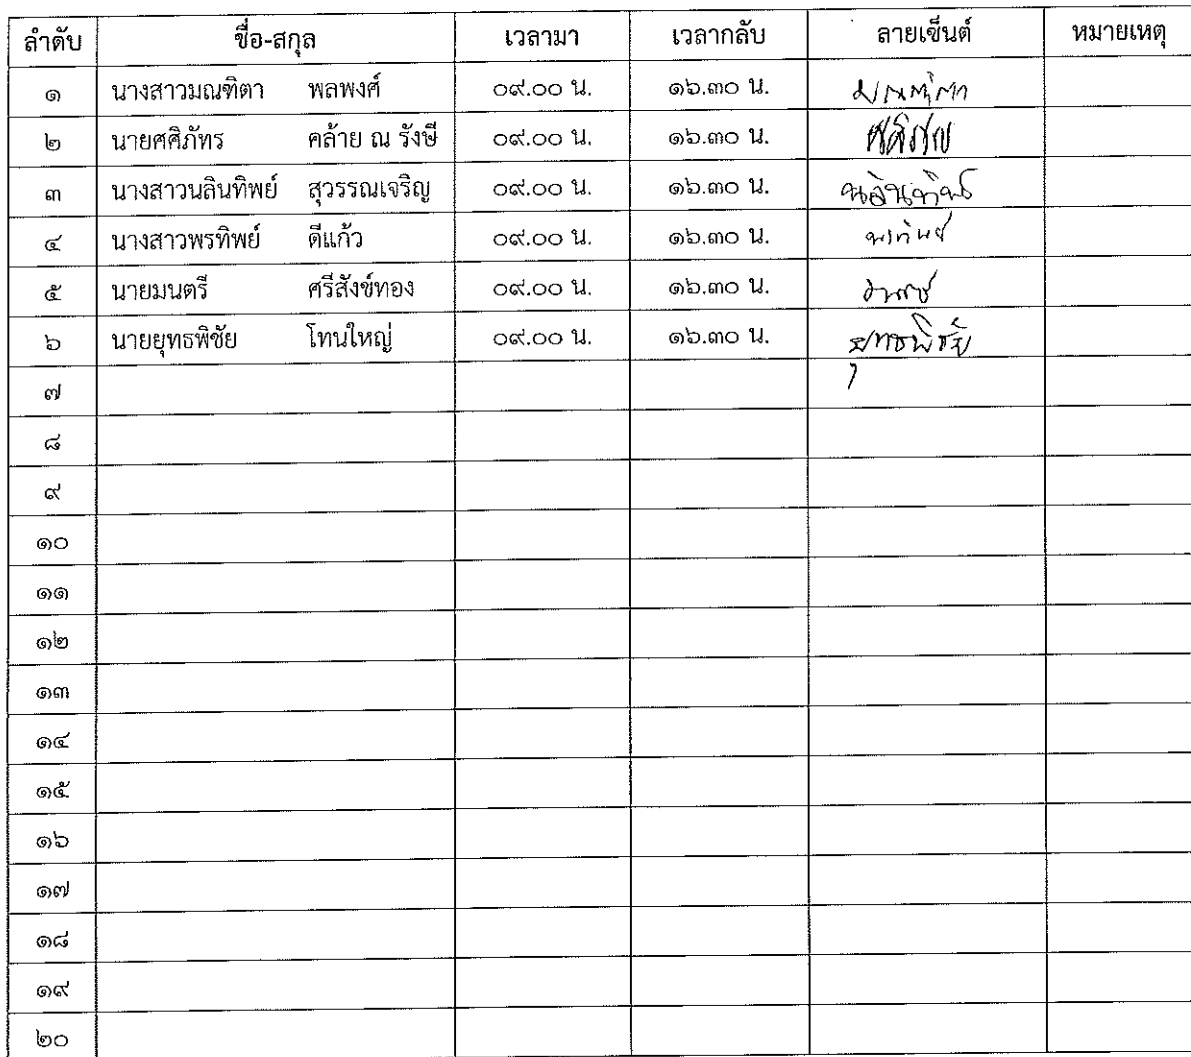 ลำดับ ชื่อ-สกุล เวลามา เวลากลับ ลายเซ็นต์ หมายเหตุ
๑ นางสาวมณฑิตา พลพงศ์ ๐๙.๐๐ น. ๑๖.๓๐ น. มณฑิตา
๒ นายศศิภัทร คล้าย ณ รังษี ๐๙.๐๐ น. ๑๖.๓๐ น.
๓ นางสาวนลินทิพย์ สุวรรณเจริญ ๐๙.๐๐ น. ๑๖.๓๐ น. นลินทิพย์
๔ นางสาวพรทิพย์ ดีแก้ว ๐๙.๐๐ น. ๑๖.๓๐ น.
๕ นายมนตรี ศรีสังข์ทอง ๐๙.๐๐ น. ๑๖.๓๐ น.
๖ นายยุทธพิชัย โทนใหญ่ ๐๙.๐๐ น. ๑๖.๓๐ น. ยุทธพิชัย
๗
๘
๙
๑๐
๑๑
๑๒
๑๓
๑๔
๑๕
๑๖
๑๗
๑๘
๑๙
๒๐